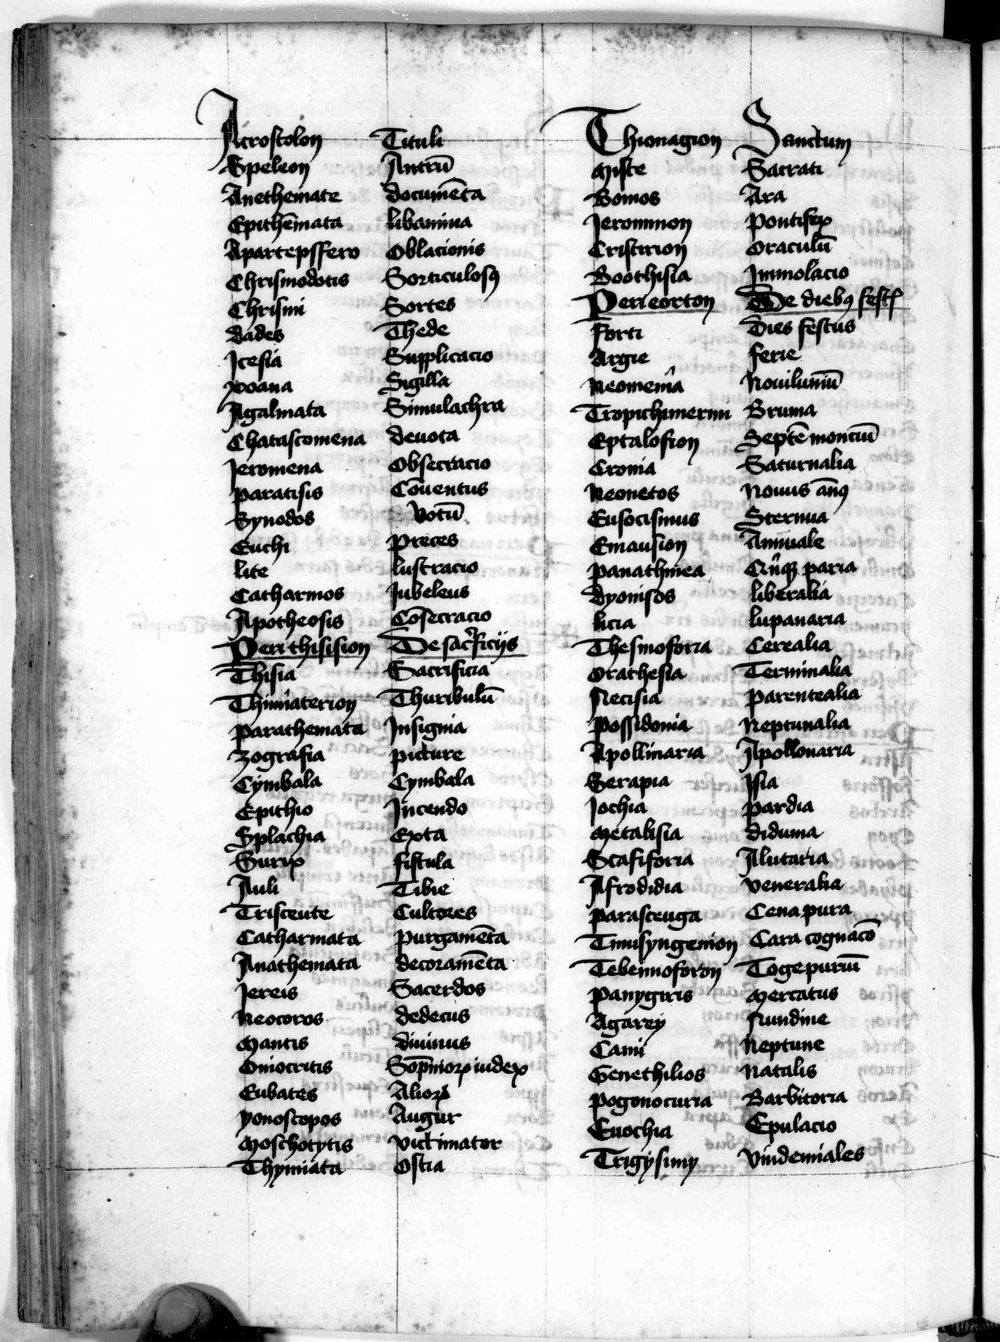 Acrostolon Tituli
Speleon Antrū
Anethemate documēta
Epithēmata libamina
Apartepssero Oblacionis
Chrismodotis Sorticulosꝯ
Chrismi Sortes
dades Thede
Icesia Supplicacio
xoana Sigilla
Agalmata Simulachra
Chatascomena devota
Jeromena Obsecracio
paratisis Cōuentus
Synodos Votū
Euchi preces
lite lustracio
Catharmos Jubeleus
Apotheosis Cōsecracio
Peri thisision De sacrificijs
Thisia Sacrificia
Thimiaterion Thuribulū
parathemata Insignia
zografia picture
Cymbala Cymbala
Epithio Incendo
Splachia Exta
Surix fistula
Auli Tibie
Trisceute Cultores
Catharmata purgamēta
Anathemata decoramēta
Jereis Sacerdos
Neocoros dedecus
Mantis divinus
Oniocritis Sōpniorꝝ iudex
Eubates Aliorꝝ
yonoscopos Augur
Moschotytis victimator
Thymiata Ostia
Thionagion Sanctum
Miste Sacrati
Bomos Ara
Jeromnon pontifex
Cristrion Oraculū
Boothisia Immolacio
Peri eorton De diebꝯ fest
forti Dies festus
Argie ferie
Neomenia Noviluniū
Tropichimerini Bruma
Eptalofion Septē montiū
Cronia Saturnalia
Neonetos Novus ānꝯ
Eusocismus Sternua
Emausion Annuale
panathinea Cūqꝫ paria
dyonisos liberalia
licia lupanaria
Thesmoforia Cerealia
Orathesia Terminalia
Necisia parentealia
possidonia Neptunalia
Apollinaria Apollonaria
Serapia Isia
Jochia pardia
Metalisia diduma
Scafiforia Ilutaria
Afrodidia veneralia
parasceuga Cena pura
Timusyngenion Cara cognacō
Tebennoforon Toge puriū
panygiris Mercatus
Agarey Nundine
Cami Neptune
Genethilios Natalis
pogonocuria Barbitoria
Euochia Epulacio
Trigysimy vindemiales